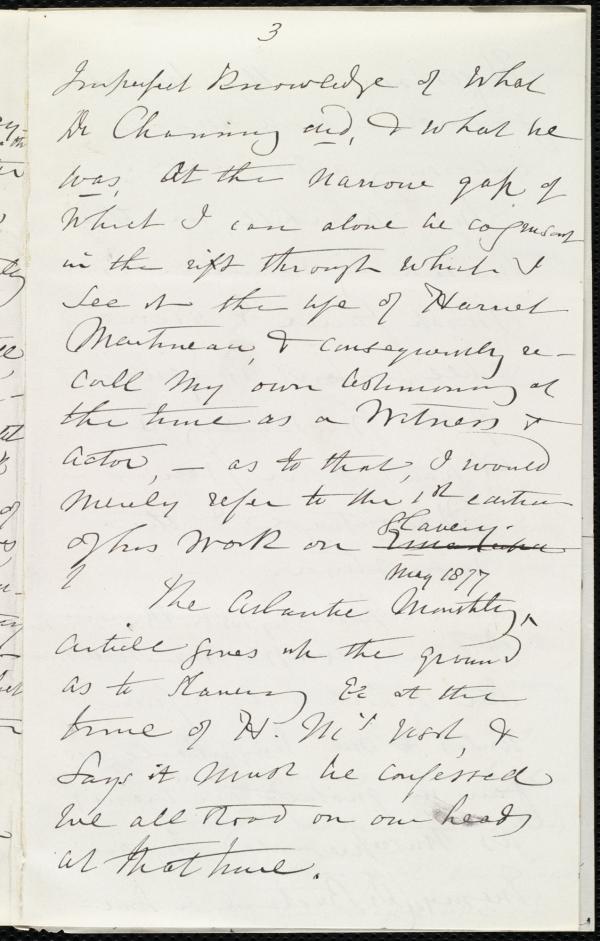 3
Imperfect knowledge of what
Dr Channing did, & what he
was. At the narrow gap of
which I can alone be cognisant
in the rift through which I
see it the life of Harriet
Martineau, & consequently re-
call my own testimony at
the time as a Witness &
actor, — as to that, I would
merely refer to the 1st edition
of his work on Slavery.
May 1877
The Atlantic Monthly,
article gives up the ground
as to Slavery &c at the
time of H. M's visit, &
says it must be confessed
we all stood on our heads
at that time.